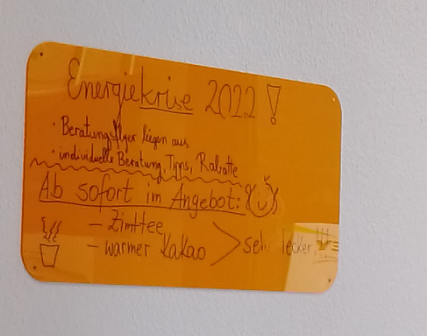 Energiekrise 2022!
· Beratungsflyer liegen aus
· individuelle Beratung, Tipps, Rabatte
Ab sofort im Angebot:
– Zimttee
– warmer Kakao > sehr lecker